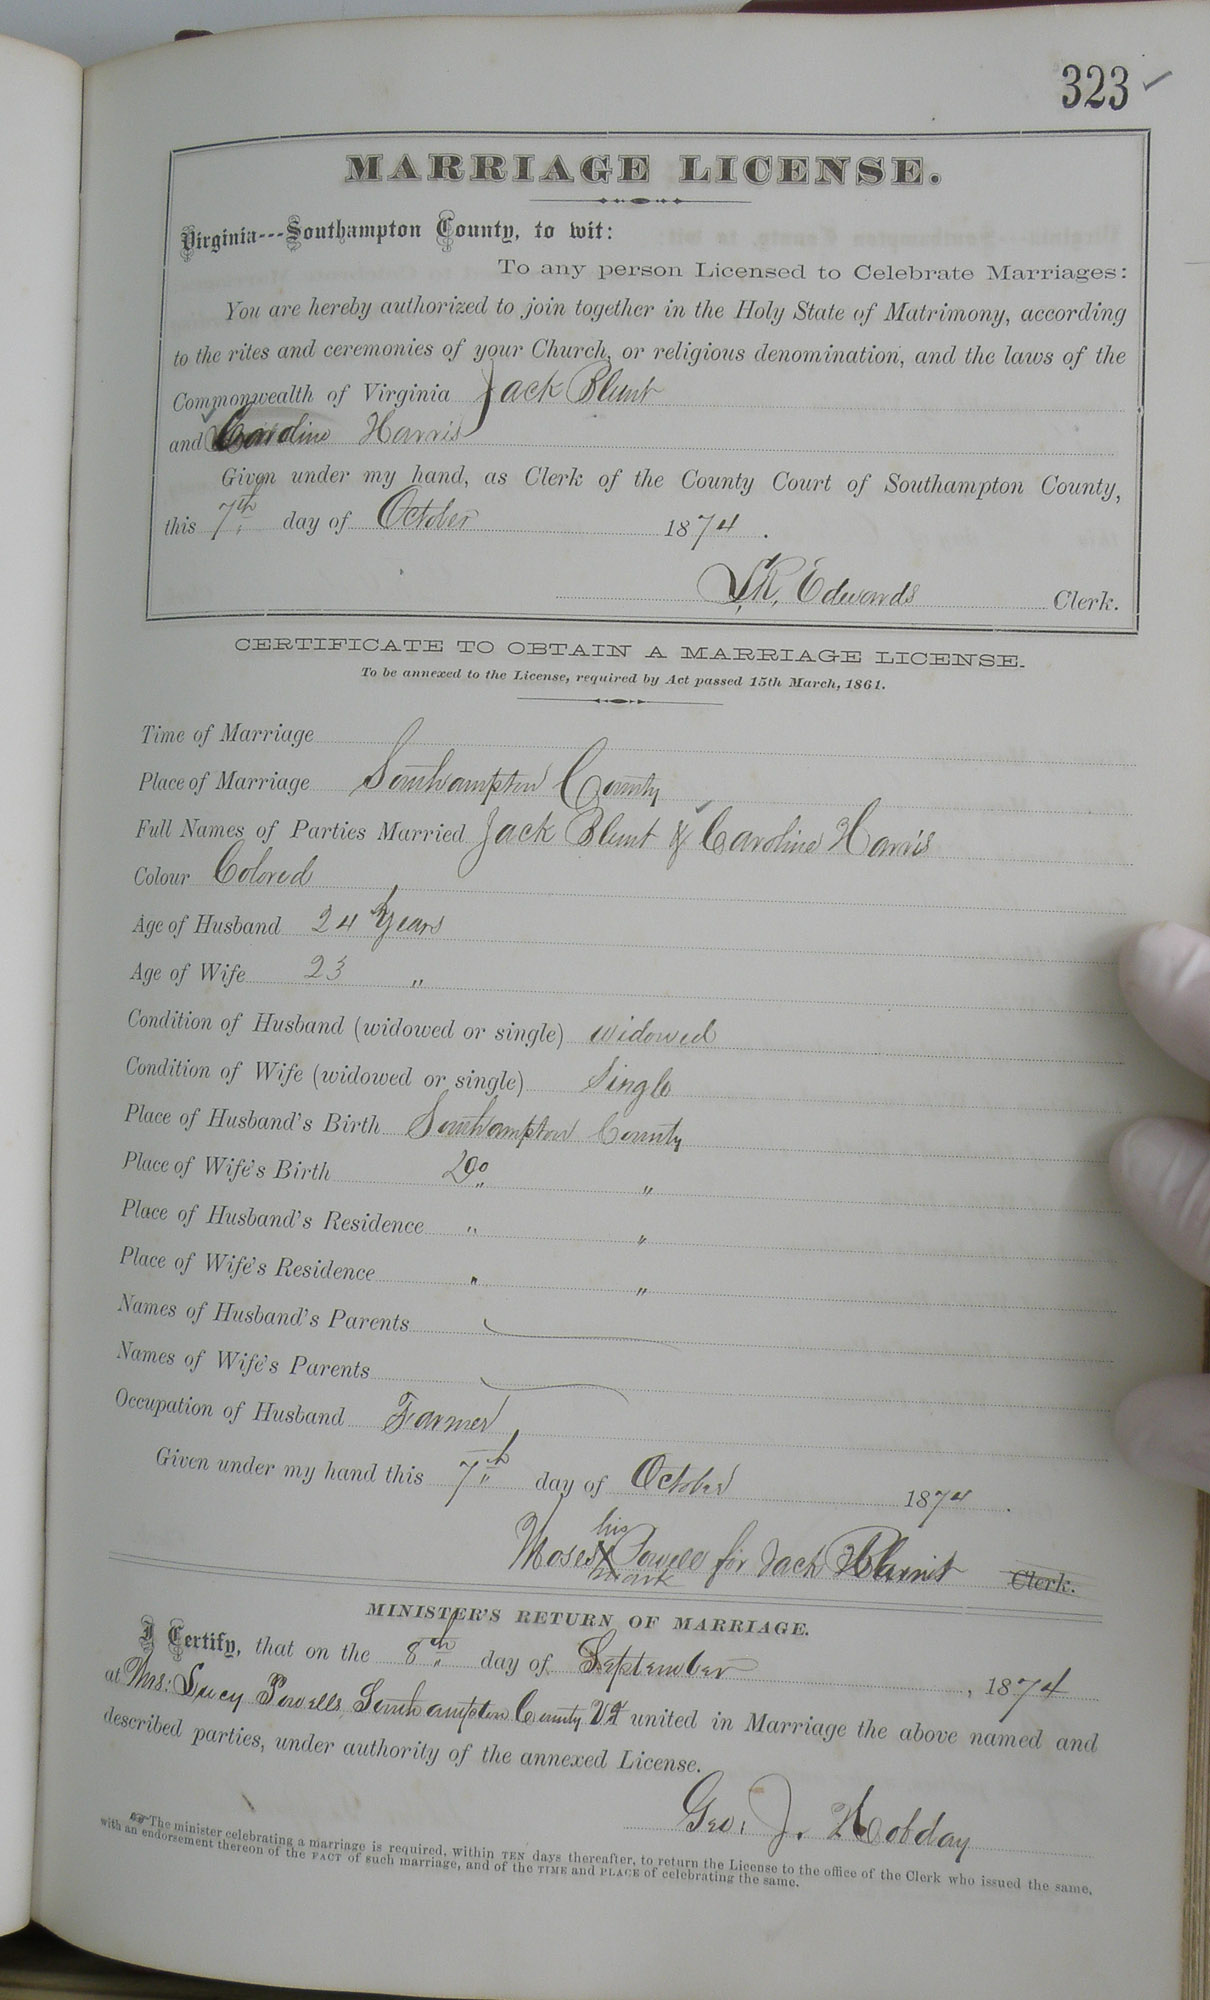 323 ✓
MARRIAGE LICENSE.
Virginia---Southampton County, to wit:
To any person Licensed to Celebrate Marriages:
You are hereby authorized to join together in the Holy State of Matrimony, according
to the rites and ceremonies of your Church, or religious denomination, and the laws of the
Commonwealth of Virginia Jack Blunt
and Caroline Harris
Given under my hand, as Clerk of the County Court of Southampton County,
this 7th day of October 1874.
L. R. Edwards Clerk.
CERTIFICATE TO OBTAIN A MARRIAGE LICENSE.
To be annexed to the License, required by Act passed 15th March, 1861.
Time of Marriage
Place of Marriage Southampton County
Full Names of Parties Married Jack Blunt & Caroline Harris
Colour Colored
Age of Husband 24 years
Age of Wife 23 "
Condition of Husband (widowed or single) widowed
Condition of Wife (widowed or single) Single
Place of Husband's Birth Southampton County
Place of Wife's Birth Do "
Place of Husband's Residence " "
Place of Wife's Residence " "
Names of Husband's Parents
Names of Wife's Parents
Occupation of Husband Farmer
Given under my hand this 7th day of October 1874.
his
Moses X Powell for Jack Blunt Clerk.
mark
MINISTER'S RETURN OF MARRIAGE.
I Certify, that on the 8th day of September, 1874
at Mrs: Lucy Powells, Southampton County Va united in Marriage the above named and
described parties, under authority of the annexed License.
Geo. J. Hobday
☞The minister celebrating a marriage is required, within TEN days thereafter, to return the License to the office of the Clerk who issued the same,
with an endorsement thereon of the FACT of such marriage, and of the TIME and PLACE of celebrating the same.